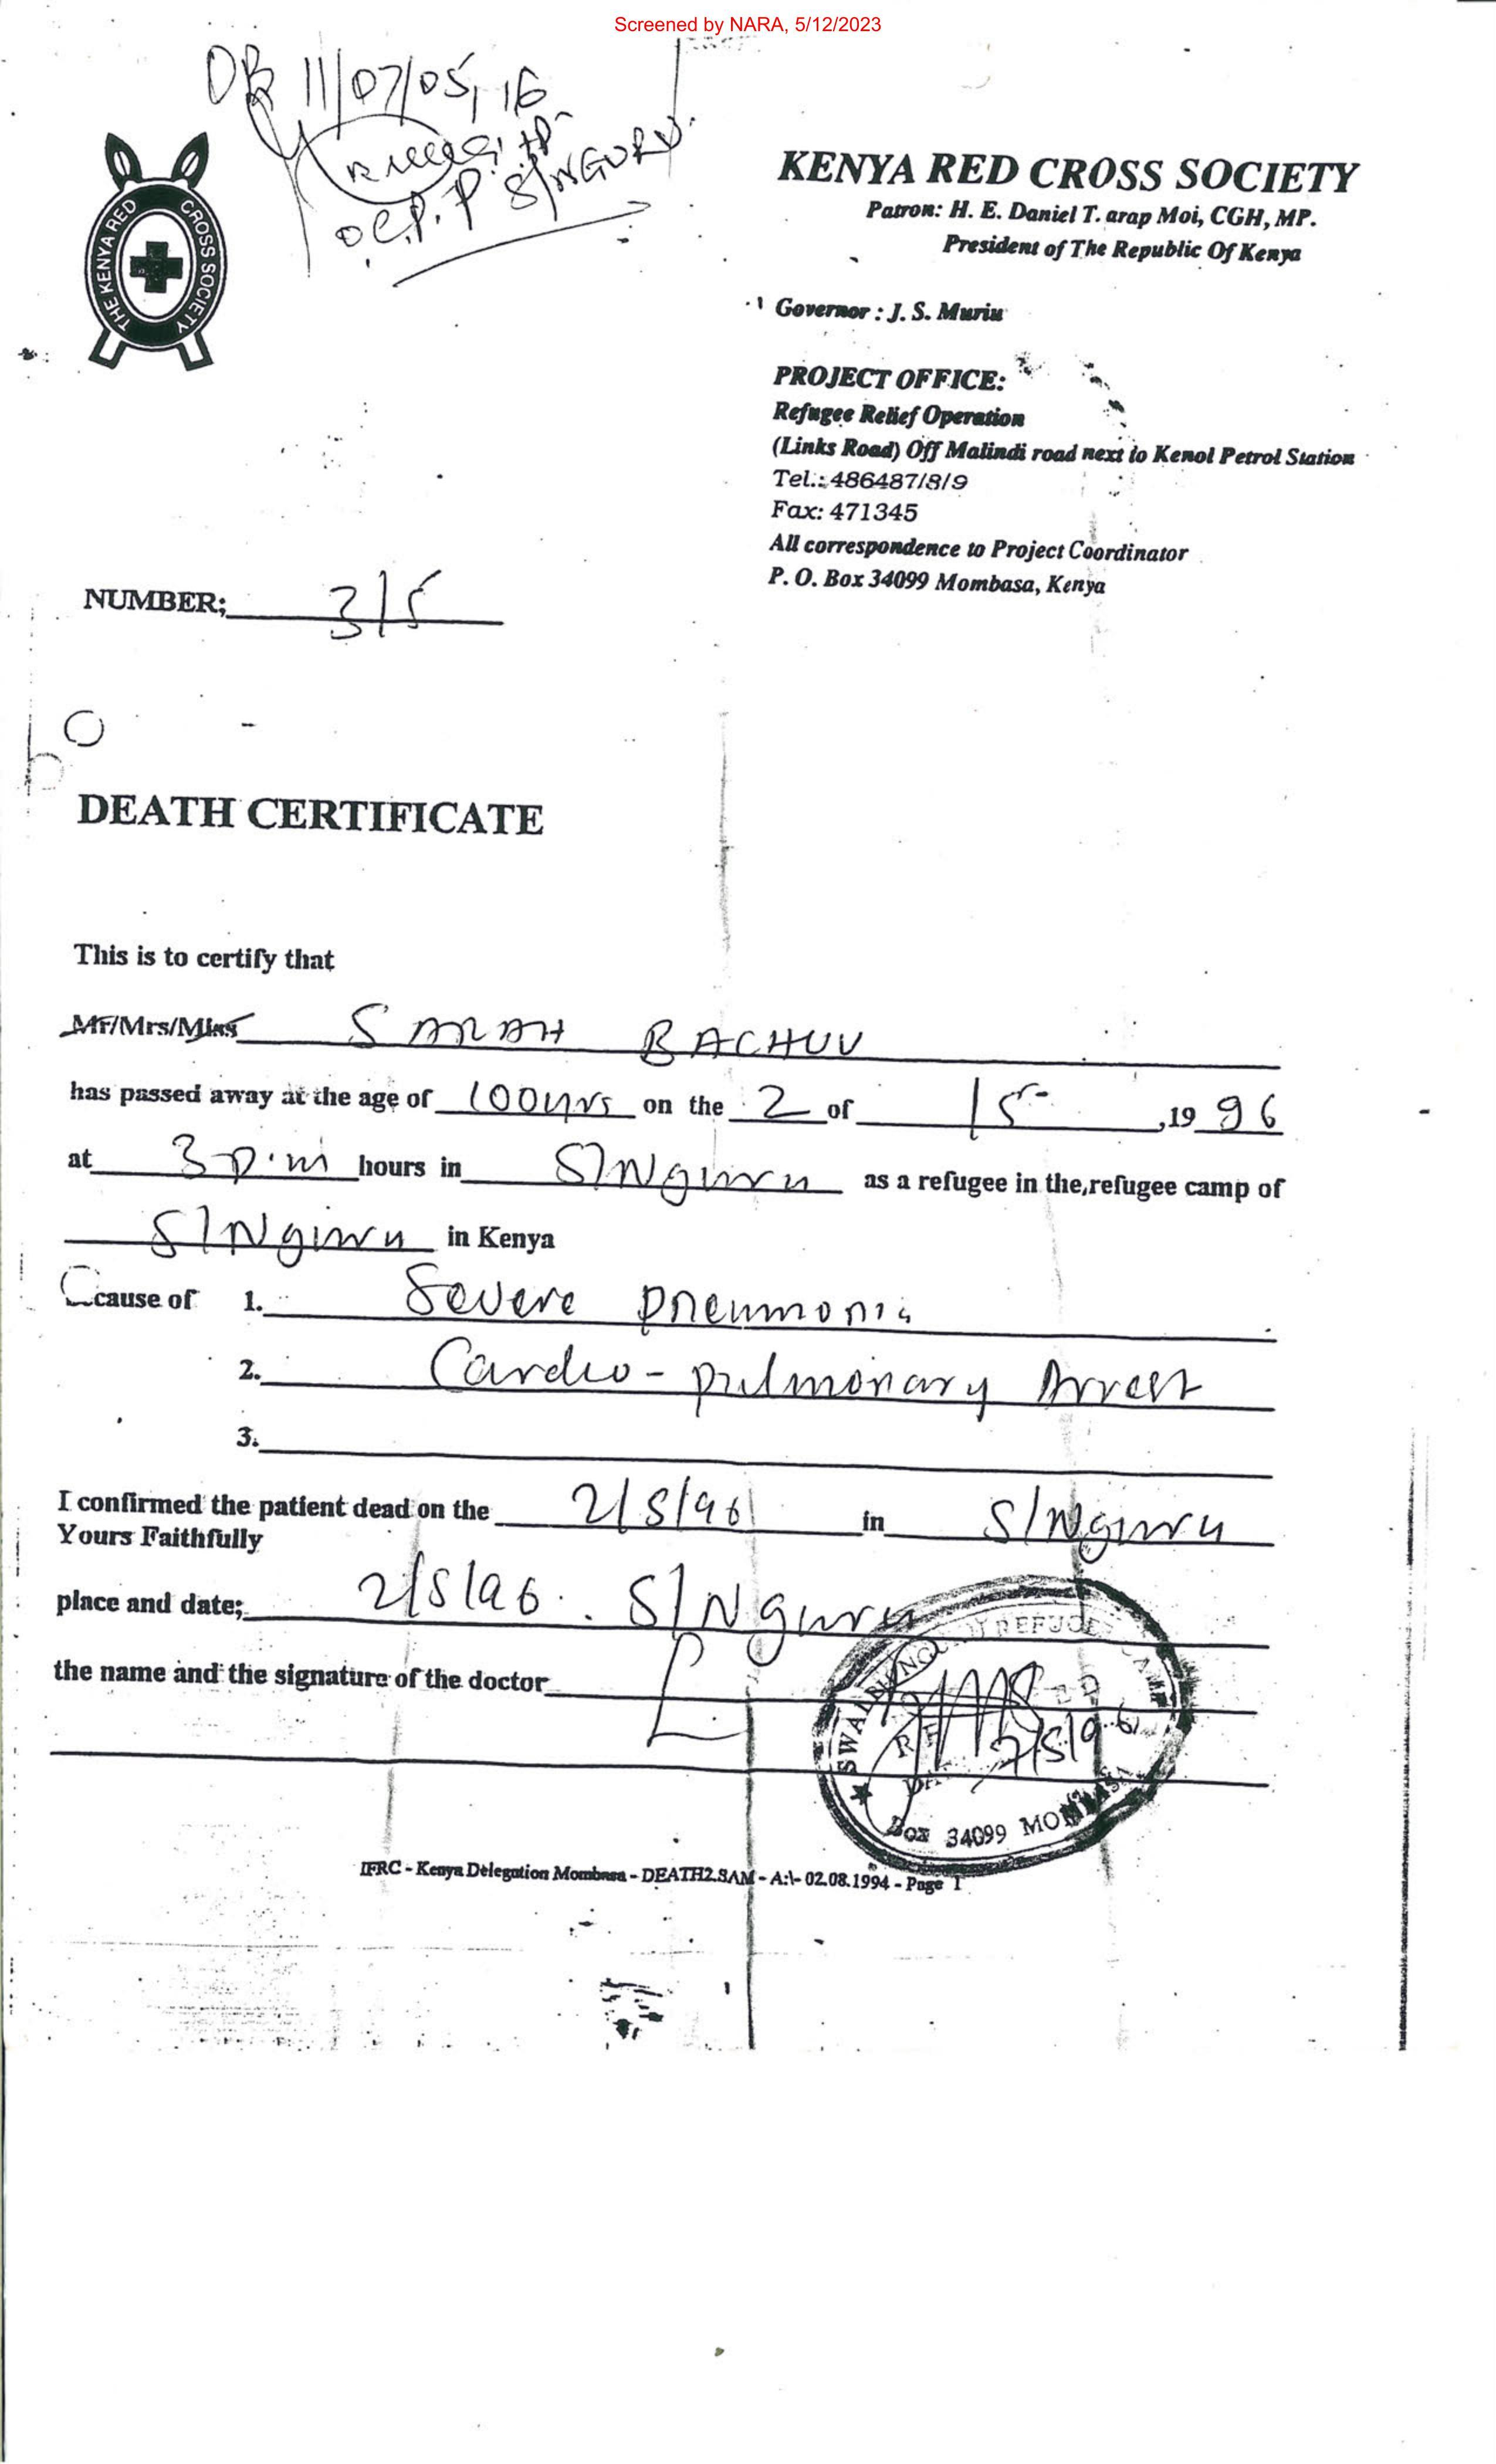 Screened by NARA, 5/12/2023
OB 11/07/05, 16
O.C.P.P S/NGURU.
THE KENYA RED CROSS SOCIETY
KENYA RED CROSS SOCIETY
Patron: H. E. Daniel T. arap Moi, CGH, MP.
President of The Republic Of Kenya
Governor : J. S. Muriu
PROJECT OFFICE:
Refugee Relief Operation
(Links Road) Off Malindi road next to Kenol Petrol Station
Tel.: 486487/8/9
Fax: 471345
All correspondence to Project Coordinator
P. O. Box 34099 Mombasa, Kenya
NUMBER; 3/5
DEATH CERTIFICATE
This is to certify that
Mr/Mrs/Miss SARAH BACHUU
has passed away at the age of 100yrs on the 2 of 15 ,19 96
at 3 p.m hours in S/Nguru as a refugee in the refugee camp of
S/Nguru in Kenya
cause of 1. Severe pneumonia
2. Cardio-pulmonary Arrest
3.
I confirmed the patient dead on the 2/5/96 in S/Nguru
Yours Faithfully
place and date; 2/5/96 . S/Nguru
the name and the signature of the doctor
REFUGEE CAMP
2/5/96
Box 34099 MOMBASA
IFRC - Kenya Delegation Mombasa - DEATH2.SAM - A:\- 02.08.1994 - Page 1